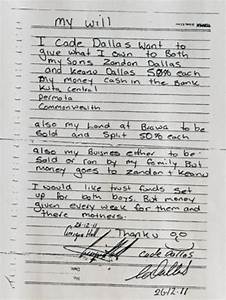 my will
I Cade Dallas Want to
give what I own to Both
my Sons Zandon Dallas
and Keano Dallas 50% each
My money Cash in the Bank
Kuta Central
Permata
Commonwealth
also my Land at Brawa to be
Sold and Split 50% each
also my Busines either to be
Sold or ran by my family But
money goes to Zandon + Keano
I would like trust funds Set
up for both boys. But money
given every week for them and
there mothers.
26-12-11
Thanku
Cade Dallas
CDallas
26-12-11